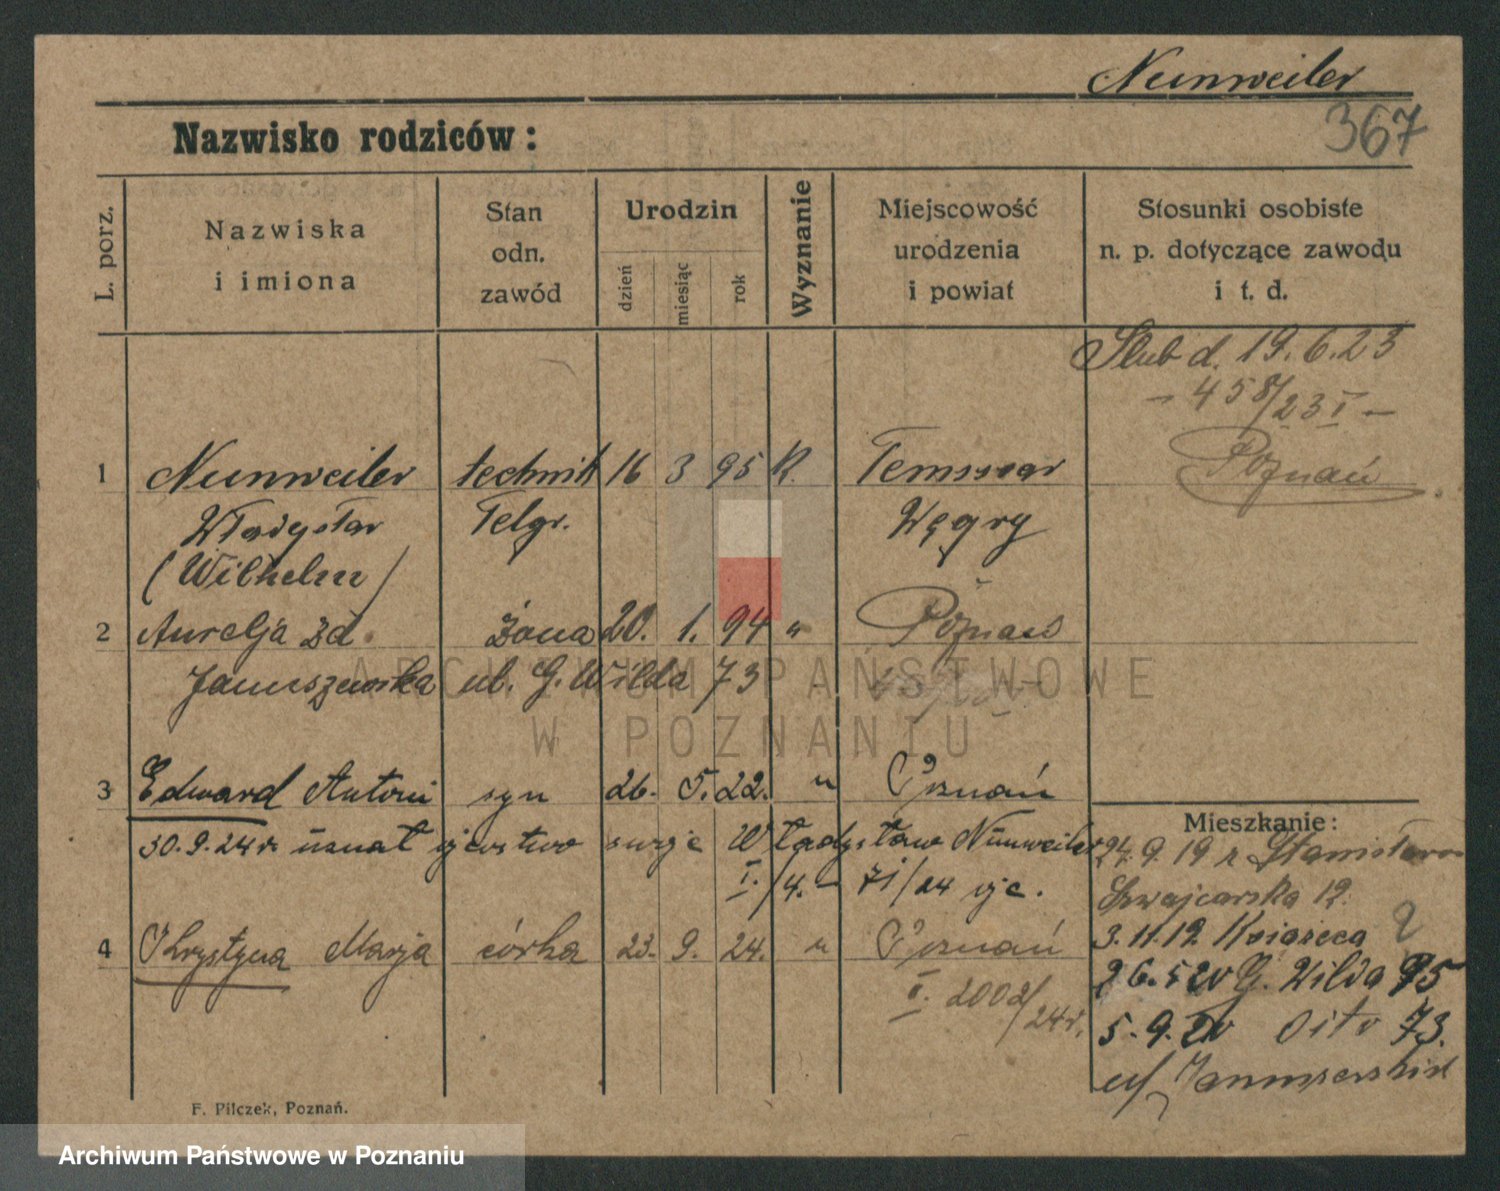 Nunweiler
367
Nazwisko rodziców:
L. porz.
Nazwiska
i imiona
Stan
odn.
zawód
Urodzin
dzień
miesiąc
rok
Wyznanie
Miejscowość
urodzenia
i powiat
Stosunki osobiste
n. p. dotyczące zawodu
i t. d.
Ślub d. 19.6.23
- 458/23 I -
Poznań
1 Nunweiler technik 16 3 95 K. Temsvar
Władysław Telgr. Węgry
(Wilhelm)
2 Aurelja zd. żona 20. 1. 94 " Poznań
Januszewska ul. G. Wilda 73
ARCHIWUM PAŃSTWOWE
W POZNANIU
3 Edward Antoni syn 26. 5. 22. " Poznań
30.9.24 r. uznał ojcostwo swoje Władysław Nunweiler
I./4. - 71/24 ojc.
4 Krystyna Marja córka 23. 9. 24. " Poznań
I. 2002/24 r.
Mieszkanie:
24.9.19 z Stanisławowa
Szwajcarska 12.
3.11.19 Książęca 2
26.5 20 G. Wilda 95
5.9.20 dito 73.
u/
F. Pilczek, Poznań.
Archiwum Państwowe w Poznaniu